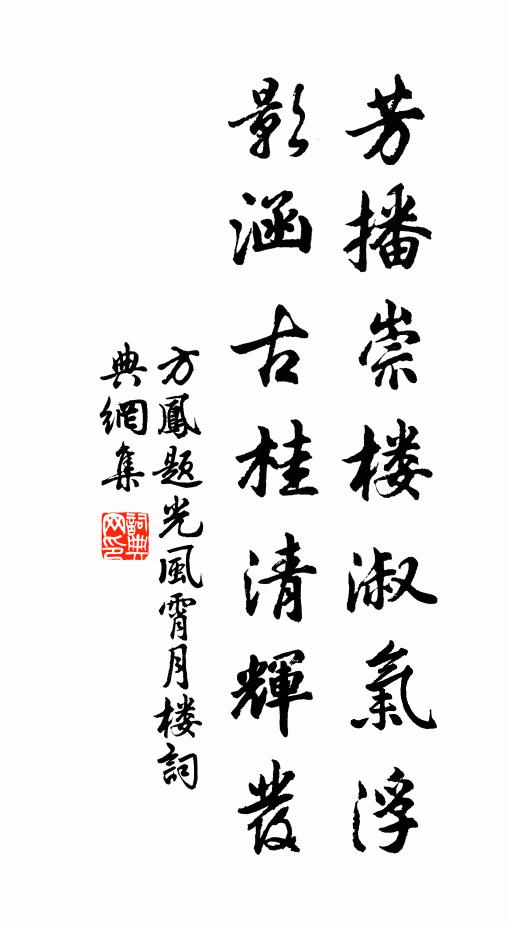 芳播崇楼淑氣浮
影涵古桂清輝發
方鳳題光風霄月楼詞
典網集
詞典網印